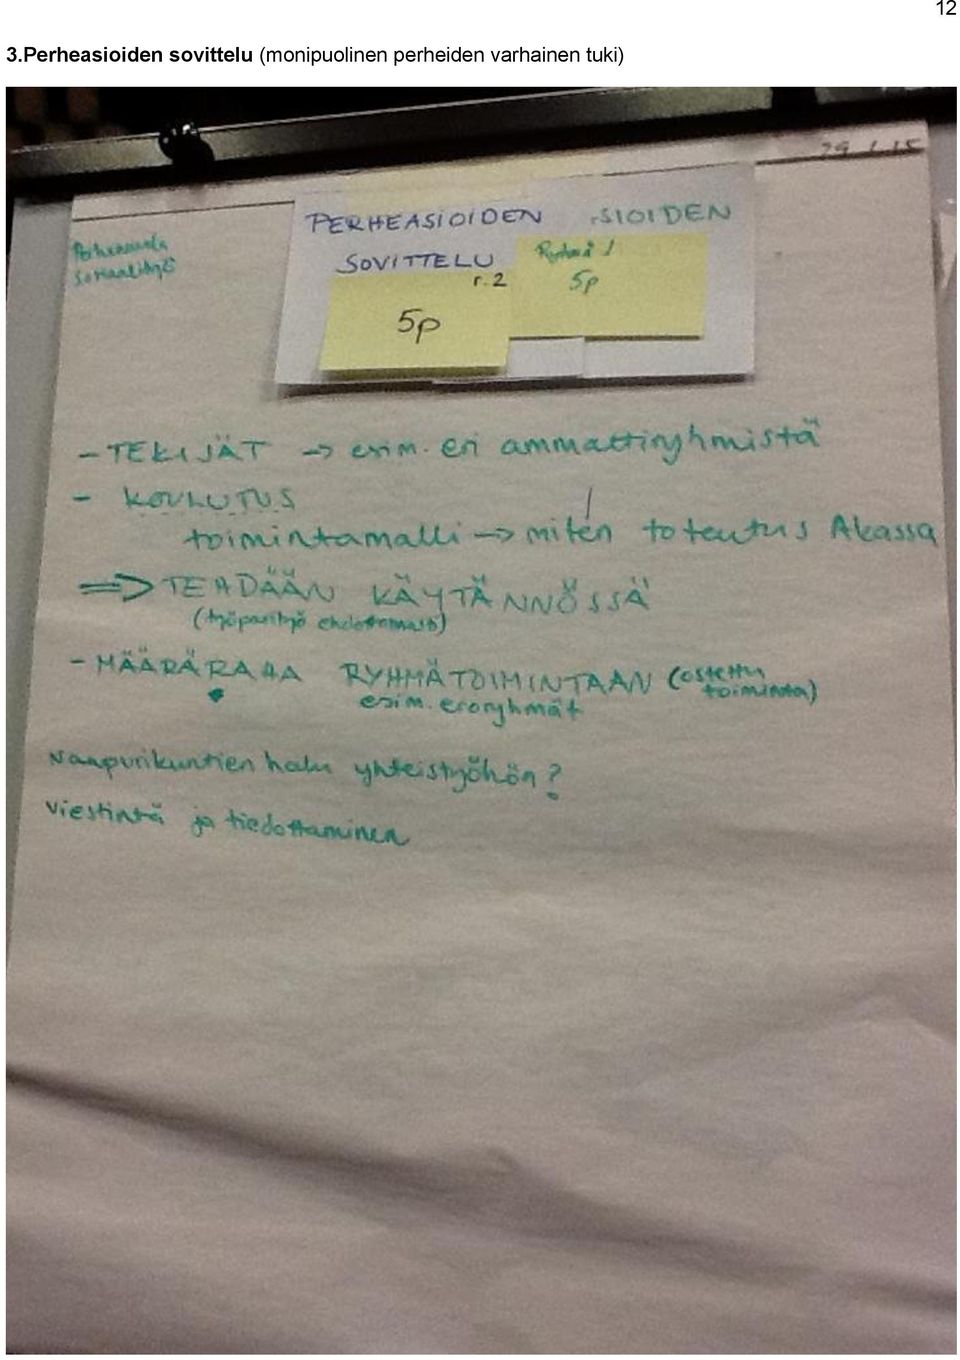 12
3.Perheasioiden sovittelu (monipuolinen perheiden varhainen tuki)
29.1.15
PERHEASIOIDEN SIOIDEN
SOVITTELU
r.2
Ryhmä 1
5p
5p
sosiaalityö
- TEKIJÄT -> esim. eri ammattiryhmistä
- KOULUTUS
toimintamalli -> miten toteutus Akassa
=> TEHDÄÄN KÄYTÄNNÖSSÄ
(työparityö ehdottomasti)
- MÄÄRÄRAHA RYHMÄTOIMINTAAN (ostettu toiminta)
esim. eroryhmät
Naapurikuntien halu yhteistyöhön?
Viestintä ja tiedottaminen